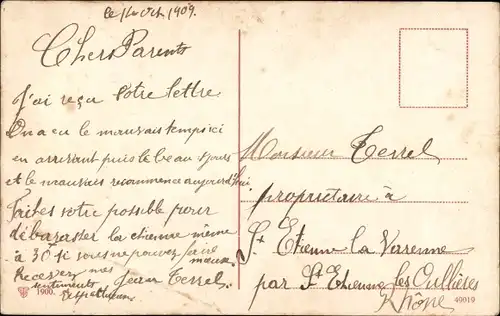 le 14 Oct 1909.
Chers Parents
J'ai reçu votre lettre
On a eu le mauvais temps ici
en arrivant puis le beau 8 jours
et le mauvais recommence aujourd'hui
Faites votre possible pour
débarasser la chienne même
à 30f si vous ne pouvez faire
mieux
Recevez mes
sentiments
respectueux
Jean Terrel
Monsieur Terrel
propriétaire à
St Etienne la Varenne
par St Etienne les Oullières
Rhône
1900.
49019